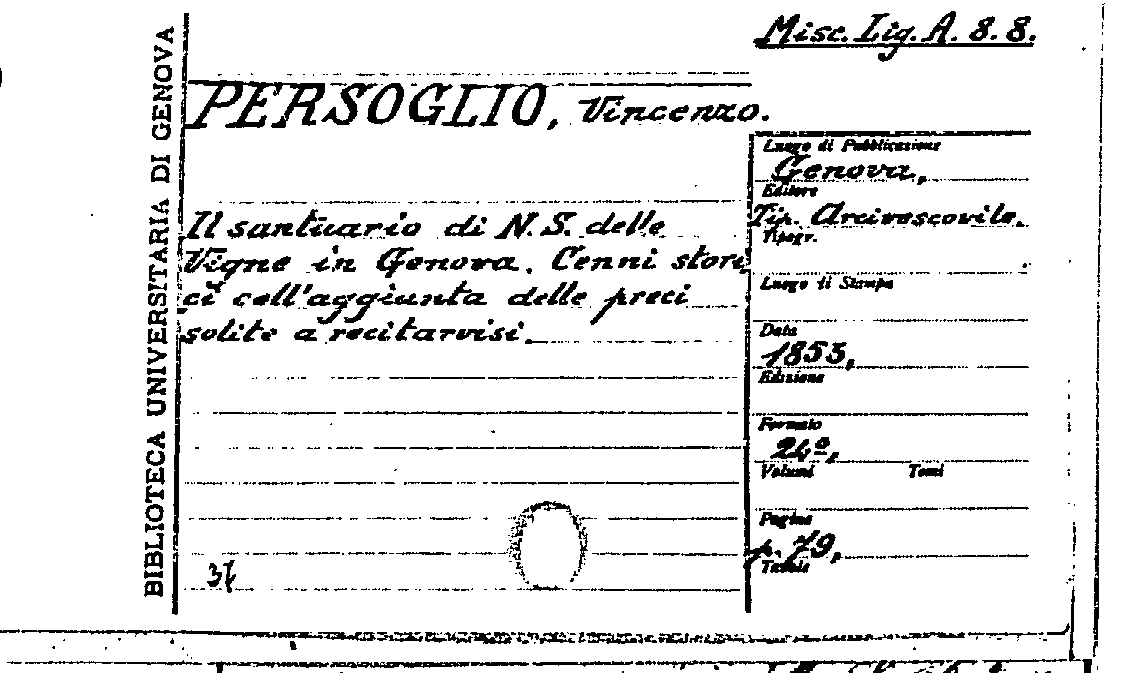 Misc. Lig. A. 8. 8.
BIBLIOTECA UNIVERSITARIA DI GENOVA
PERSOGLIO, Vincenzo.
Il santuario di N.S. delle
Vigne in Genova. Cenni stori
ci coll'aggiunta delle preci
solite a recitarvisi.
Luogo di Pubblicazione
Genova,
Editore
Tip. Arcivescovile.
Tipogr.
Luogo di Stampa
Data
1853,
Edizione
Formato
24º,
Volumi Tomi
Pagine
p. 79,
Tavole